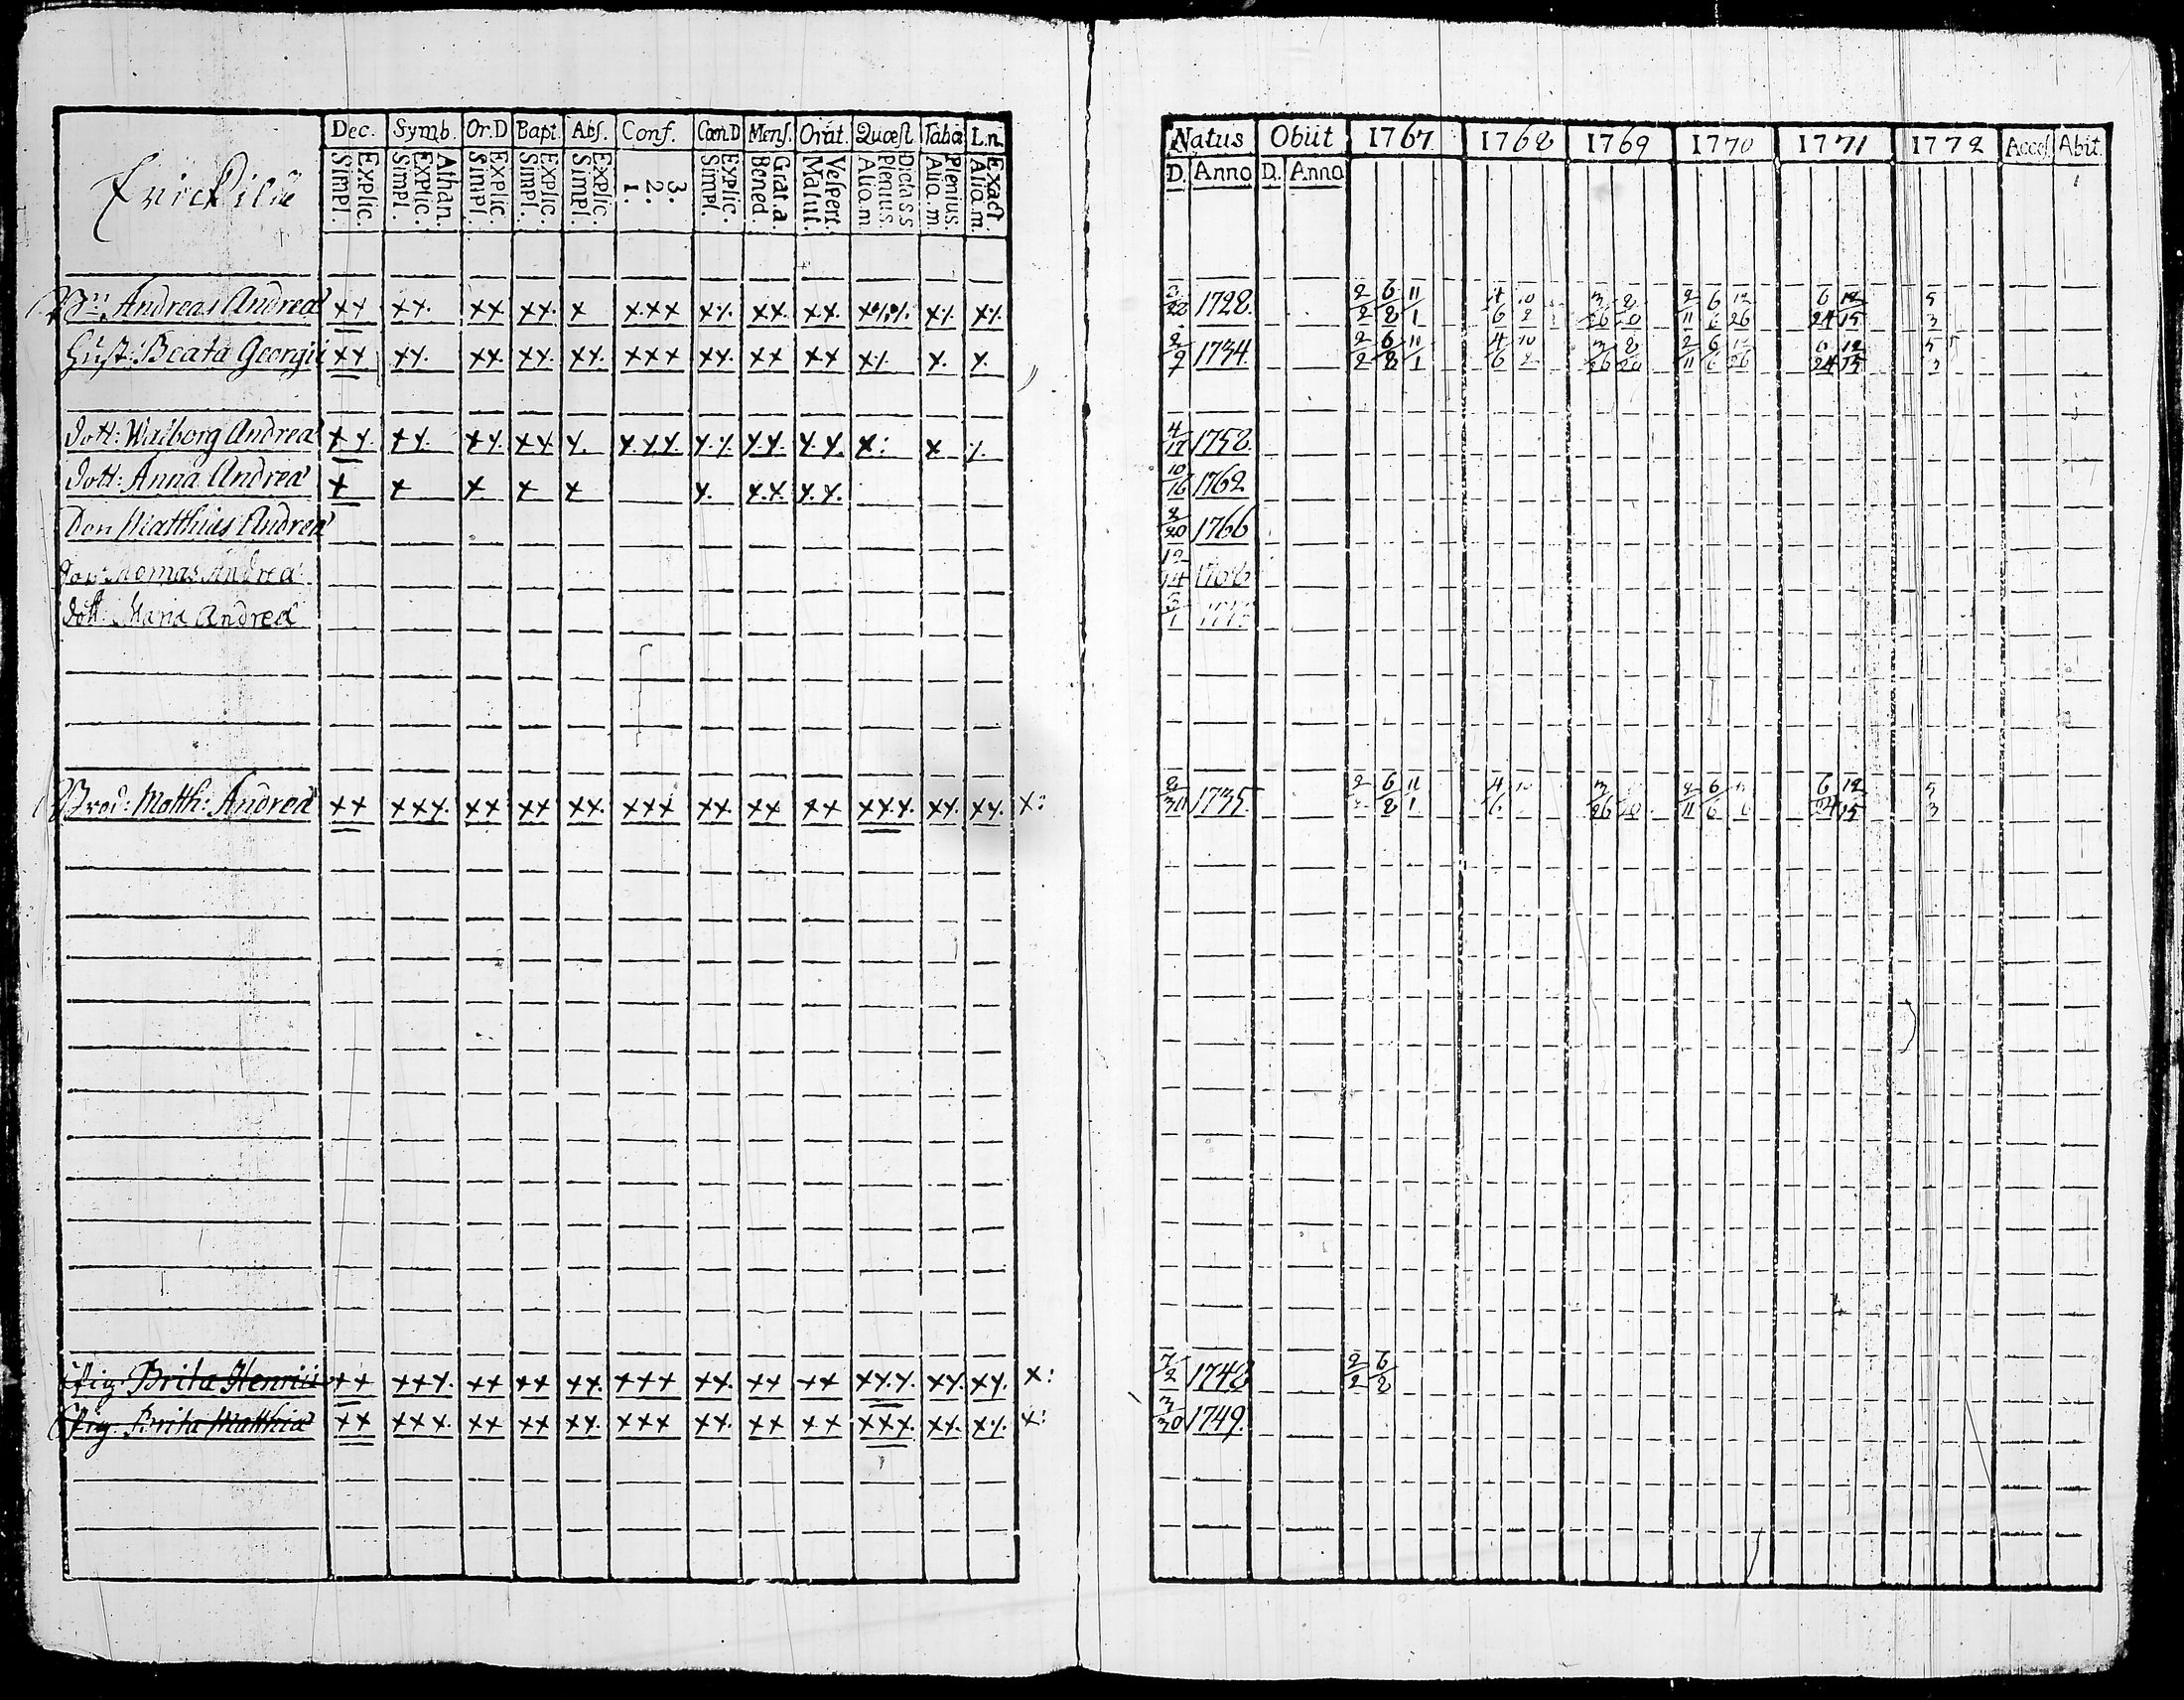 Dec. Symb. Or.D Bapt. Abs. Conf. CœnD Mens. Orat. Quæst. Taba L.n.
Explic. Simpl. Athan. Explic. Simpl. Explic. Simpl. Explic. Simpl. Explic. Simpl. 3. 2. 1. Explic. Simpl. Grat.a. Bened. Vespert. Matut. Dictass Plenius. Alia.m Plenius. Alia.m. Exact. Alia.m.
Natus Obiit 1767 1768 1769 1770 1771 1772 Acces. Abit.
D. Anno D. Anno
Andreas Andreæ xx xx. xx xx. x x.xx x% xx. xx. x%%. x% x% 1728. 2/2 6/8 11/1 4/6 10/8 3/26 8/20 2/11 6/6 12/26 6/24 12/15 5/3
Hust: Beata Georgii xx xx. xx xx. xx. xxx xx. xx xx x% x. x. 2/7 1734. 2/2 6/8 11/1 4/6 10/8 3/26 8/20 2/11 6/6 12/26 6/24 12/15 5/3
dott: Walborg Andreæ xx. xx. xx. xx x. x.x.x. x.% x.x. x.x. x: x % 4/17 1758.
dott: Anna Andreæ x x x x x x. x.x x.x. 10/16 1762
Son Matthias Andreæ 2/20 1766
Thomas Andreæ 12/14
dott: Maria Andreæ
Brod: Matth: Andreæ xx xxx. xx xx xx. xxx xx. xx xx xxx. xx. xx. x: 8/30 1735. 2/2 6/8 11/1 4/6 10 3/26 20 2/11 6/6 6/24 12/15 5/3
Pig. Brita Henrici xx xxx. xx xx xx. xxx xx. xx xx xx.x. xx. xx. x: 7/2 1748 2/2 6/8
Pig. Brita Matthiæ xx xxx. xx xx xx. xxx xx. xx xx xxx. xx. x% x: 3/30 1749.